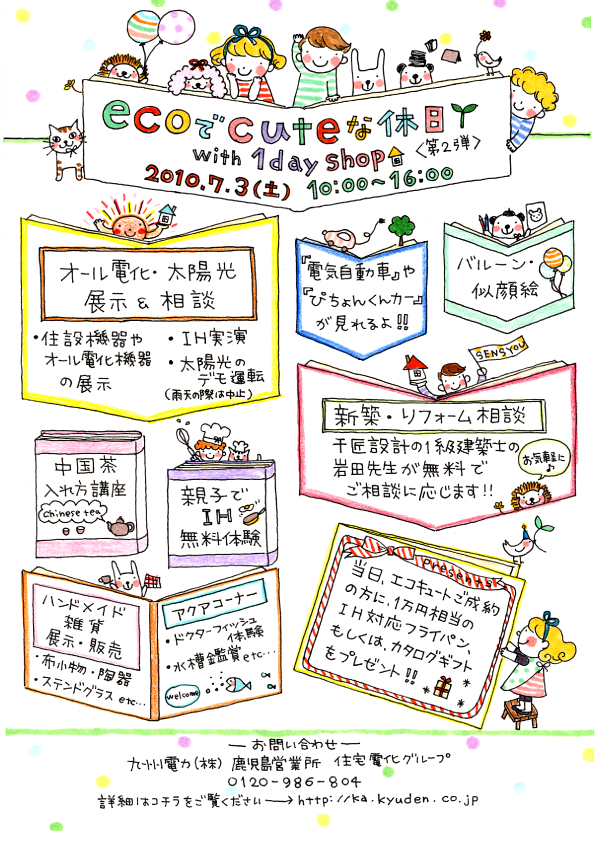 ecoでcuteな休日
with 1day shop <第2弾>
2010.7.3(土) 10:00~16:00
オール電化・太陽光
展示&相談
・住設機器や
オール電化機器
の展示
・IH実演
・太陽光の
デモ運転
(雨天の際は中止)
『電気自動車』や
『ぴちょんくんカー』
が見れるよ!!
バルーン・
似顔絵
SENSYOU
新築・リフォーム相談
千匠設計の1級建築士の
岩田先生が無料で
ご相談に応じます!!
お気軽に♪
中国茶
入れ方講座
Chinese tea
親子で
IH
無料体験
ハンドメイド
雑貨
展示・販売
・布小物・陶器
・ステンドグラス etc…
アクアコーナー
・ドクターフィッシュ
体験
・水槽鑑賞etc…
welcome
Present
当日、エコキュートご成約
の方に、1万円相当の
IH対応フライパン、
もしくは、カタログギフト
をプレゼント!!
―お問い合わせ―
九州電力(株) 鹿児島営業所 住宅電化グループ
0120-986-804
詳細はコチラをご覧ください→http://ka.kyuden.co.jp